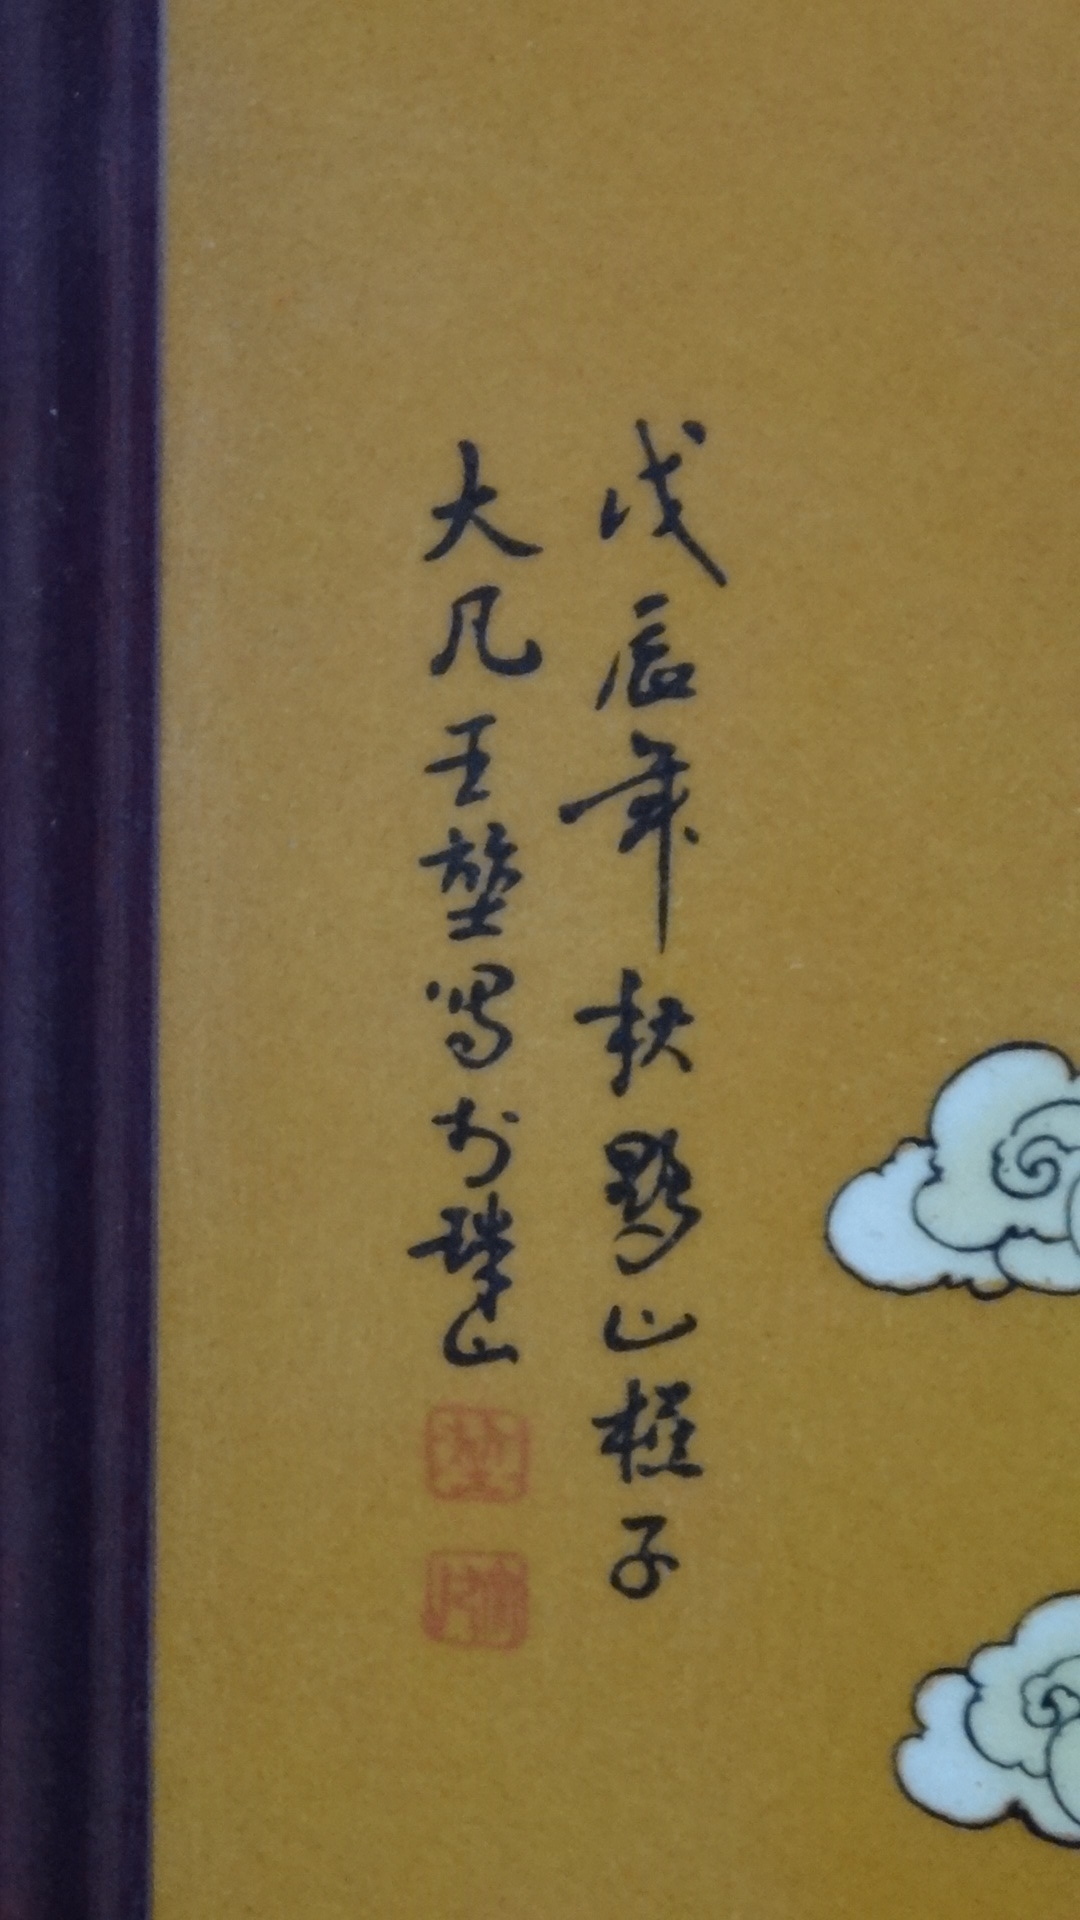 戊辰年秋黟山樵子
大凡王堃寫於珠山